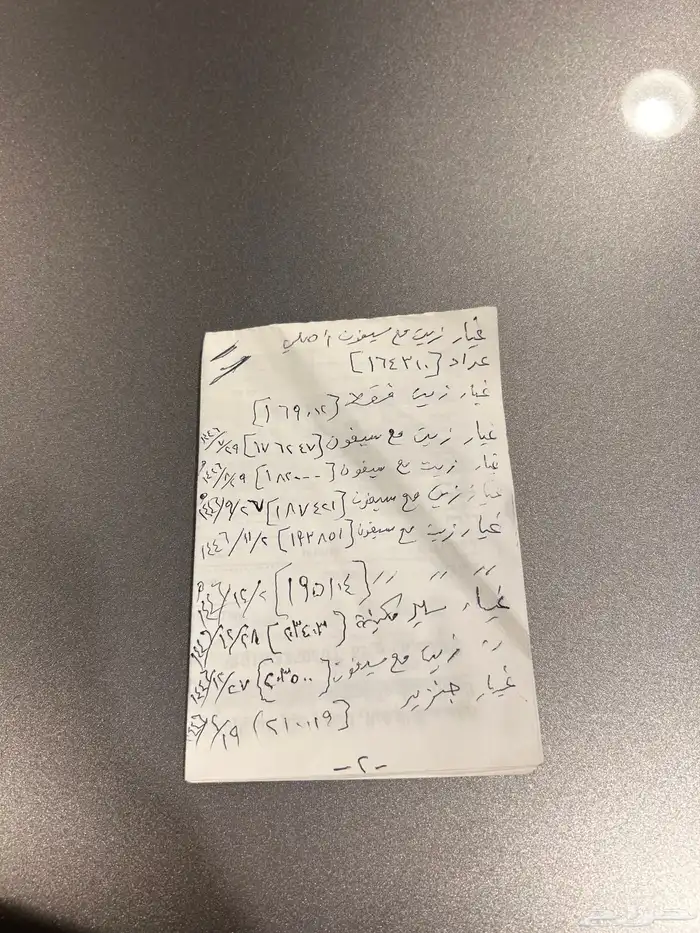 غيار زيت مع سيفون اصلي
عداد [١٦٤٣١٠]
غيار زيت فقط [١٦٩٠١٢]
غيار زيت مع سيفون [١٧٦٢٤٧] ١٤٤٦/٧/٢٩
غيار زيت مع سيفون [١٨٢٠٠٠]
غيار زيت مع سيفون [١٨٧٤٢١] ١٤٤٦/٩/٢٧
غيار زيت مع سيفون [١٩٢٨٥١] ١٤٤٦/١١/٢
〃 〃 〃 [١٩٥١٠٤] ١٤٤٦/١٢/٢
غيار سير مكينة [٢٠٣٤٠٣] ١٢/٢٨
〃 زيت مع سيفون [٢٠٣٥٠٠] ١٢/٢٧
غيار جنزير
[٢١٠١١٩]
-٢-
حراج